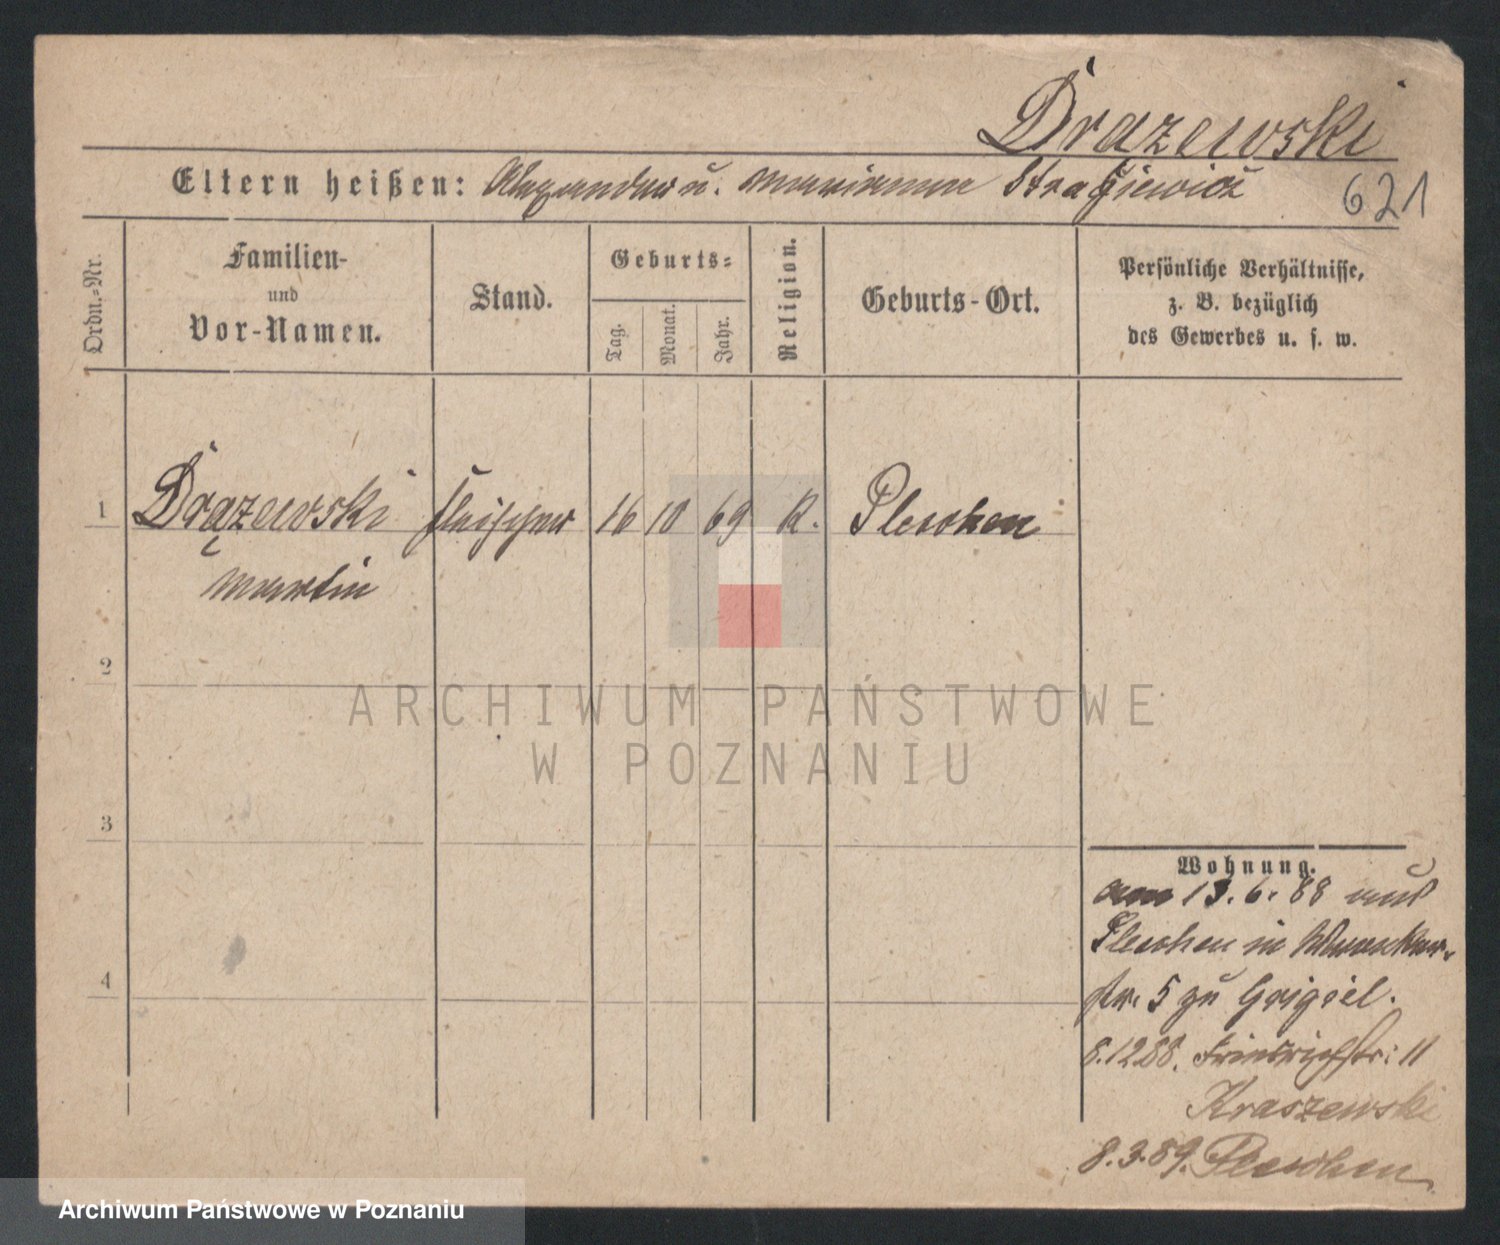 Drazewski
Eltern heißen: Alexander u. Marianna Stragiewicz
621
Ordn.-Nr.
Familien-
und
Vor-Namen.
Stand.
Geburts-
Tag.
Monat.
Jahr.
Religion.
Geburts-Ort.
Persönliche Verhältnisse,
z. B. bezüglich
des Gewerbes u. s. w.
1 Drązewski Fleischer 16 10 69 K. Pleschen
Martin
2
3
4
Wohnung.
am 13.6.88 aus
Pleschen in
str. 5 zu Grigiel.
8.12.88. Friedrichstr: 11
Kraszewski
8.3.89. Pleschen
ARCHIWUM PAŃSTWOWE
W POZNANIU
Archiwum Państwowe w Poznaniu